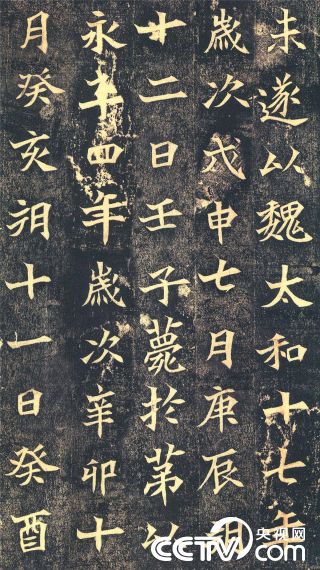 未遂以魏太和十七年
歲次戊申七月庚辰朔
廿二日壬子薨於第以
永平四年歲次辛卯十
月癸亥朔十一日癸酉
央视网
CCTV.com